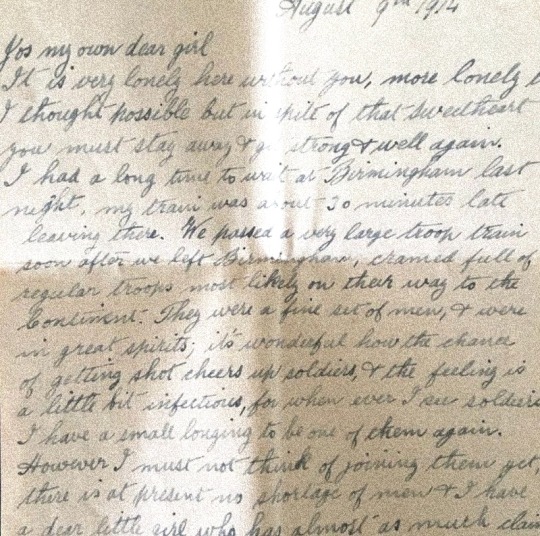 August 9th 1914
Yos my own dear girl
It is very lonely here without you, more lonely
I thought possible but in spite of that sweetheart
you must stay away & get strong & well again.
I had a long time to wait at Birmingham last
night, my train was about 30 minutes late
leaving there. We passed a very large troop train
soon after we left Birmingham, cramed full of
regular troops most likely on their way to the
Continent. They were a fine set of men, & were
in great spirits; it's wonderful how the chance
of getting shot cheers up soldiers, & the feeling is
a little bit infectious, for when ever I see soldiers
I have a small longing to be one of them again.
However I must not think of joining them yet,
there is at present no shortage of men & I have
a dear little girl who has almost as much claim